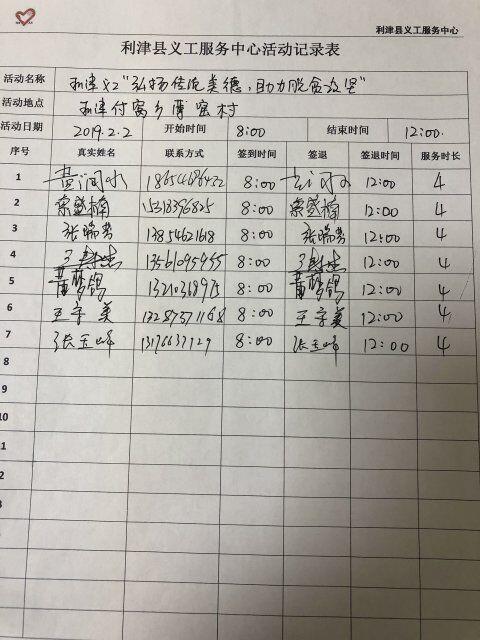 利津县义工服务中心
利津县义工服务中心活动记录表
活动名称 利津义工"弘扬传统美德,助力脱贫攻坚"
活动地点 利津付窝乡 村
活动日期 2019.2.2 开始时间 8:00 结束时间 12:00.
序号 真实姓名 联系方式 签到时间 签退 签退时间 服务时长
1 8:00 12:00 4
2 15318396825 8:00 12:00 4
3 张瑞芳 13854621618 8:00 张瑞芳 12:00 4
4 13561095955 8:00 12:00 4
5 黄梦鸽 8:00 黄梦鸽 12:00 4
6 王守美 8:00 王守美 12:00 4
7 张玉峰 13176637129 8:00 张玉峰 12:00 4
8
9
10
1
2
3
4
5
6
7
8